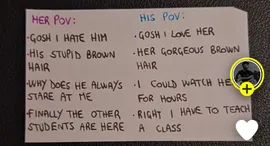 HER POV:
·GOSH I HATE HIM
·HIS STUPID BROWN
HAIR
·WHY DOES HE ALWAYS
STARE AT ME
·FINALLY THE OTHER
STUDENTS ARE HERE
HIS POV:
·GOSH I LOVE HER
·HER GORGEOUS BROWN
HAIR
·I COULD WATCH HE
FOR HOURS
·RIGHT I HAVE TO TEACH
A CLASS